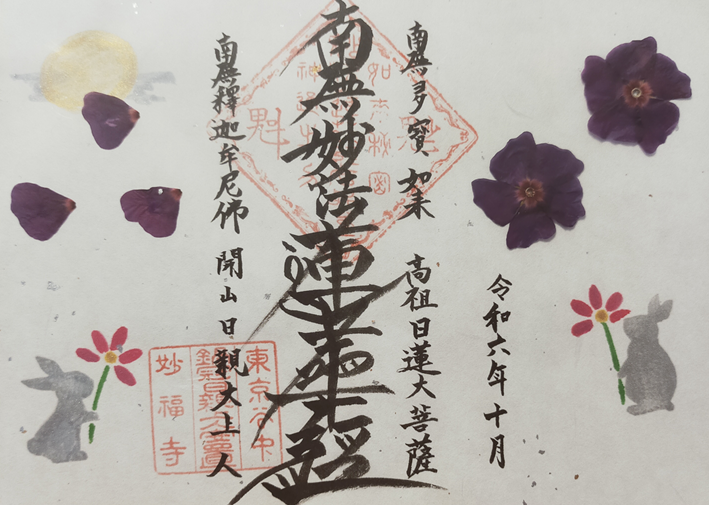 令和六年十月
南無多寳如来
高祖日蓮大菩薩
南無妙法蓮華経
南無釋迦牟尼佛
開山日親大上人
東京谷中
妙福寺